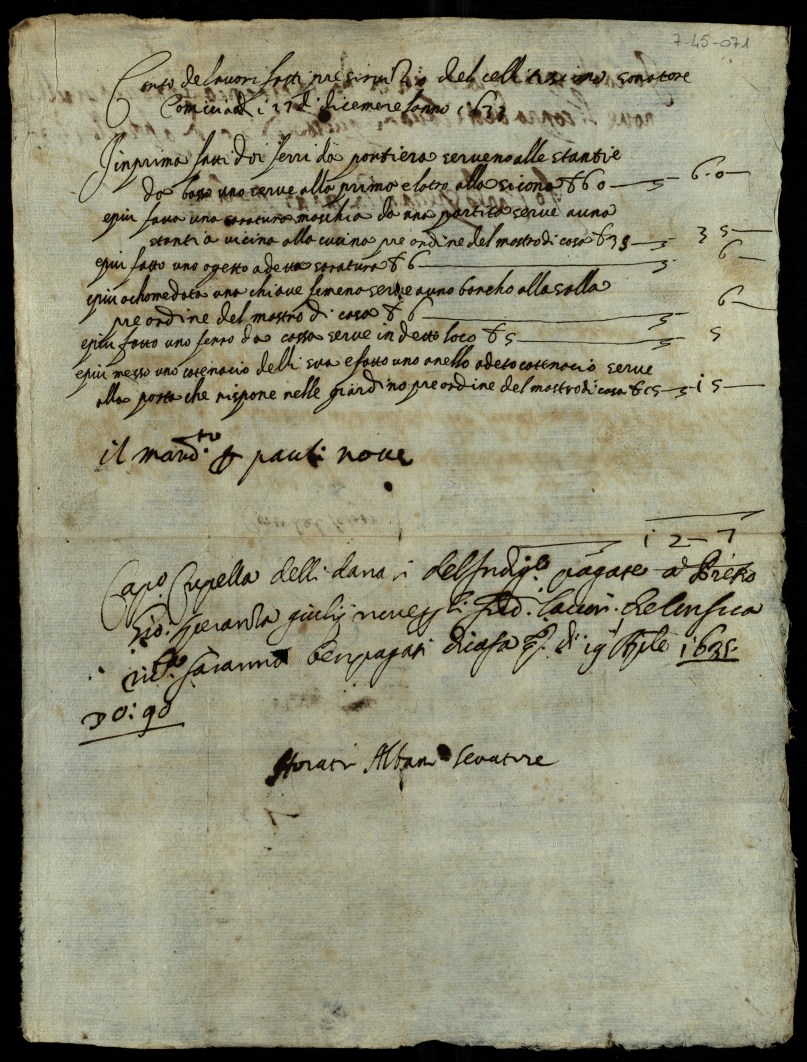 7-45-071
Conto de lavori fatti pre servitio del cellentissimo senatore
Cominciado i 27 di dicembre lanno 163
Jnprima fatti doi ferri da portiera serveno alle stantie
da basso uno serve alla prima e latro alla sicona 60 60
epiu fatta una saratura maschia da una partita serve a una
stantia vicina alla cucina pre ordine del mastro di casa 35 35
epiu fatto uno ogetto a detta saratura 6 6
epiu achomodata una chiave femena serve a uno bancho alla salla
pre ordine del mastro di casa 6 6
epiu fatto uno ferro da cassa serve in detto loco 5 5
epiu messo uno catenacio delli sua e fatto uno anello a deto catenacio serve
alla porta che rispone nelle giardino pre ordine del mastro di casa 15 15
il mand.to pauli nove
127
Cap.o Cupella delli danari pagate a Pietro
Gio: Speranza giulij nove lavori
saranno ben pagati di casa di 19 Aprile 1635
D 0: 90
Horatio Albani Senatore